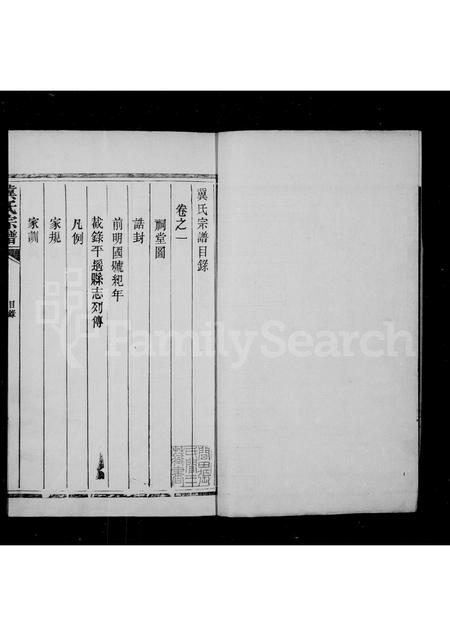 冀氏宗譜目錄
卷之一
祠堂圖
誥封
前明國號紀年
截錄平遙縣志列傳
凡例
家規
家訓
冀氏宗譜
目錄
FamilySearch